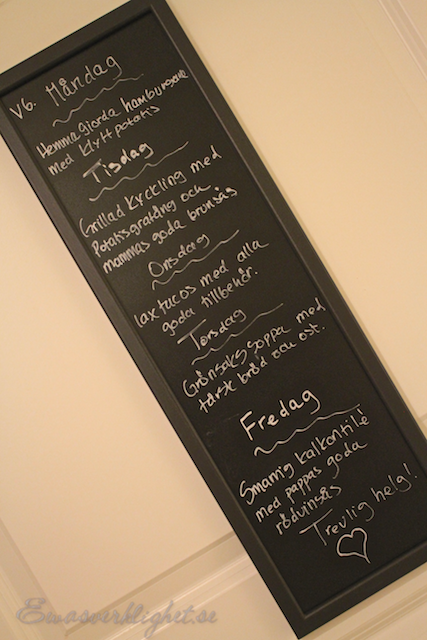 V6. Måndag
Hemmagjorda hamburgare
med klyftpotatis
Tisdag
Grillad kyckling med
Potatisgratäng och
mammas goda brunsås
Onsdag
laxtacos med alla
goda tillbehör.
Torsdag
Grönsakssoppa med
färsk bröd och ost.
Fredag
Smarrig kalkonfilé
med pappas goda
rödvinsås
Trevlig helg!
Ewasverklighet.se